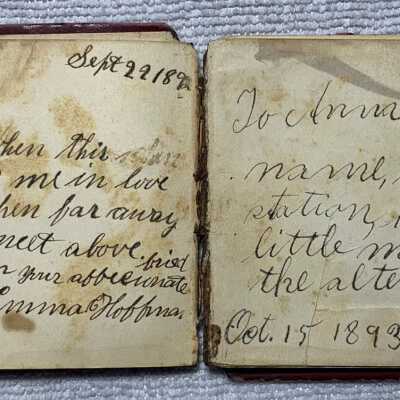 Sept 22 189
When this
me in love
when far away
meet above
your affecionate frind
Emma Hoffma
To Anna
name,
station,
little m
the alte
Oct. 15 1893